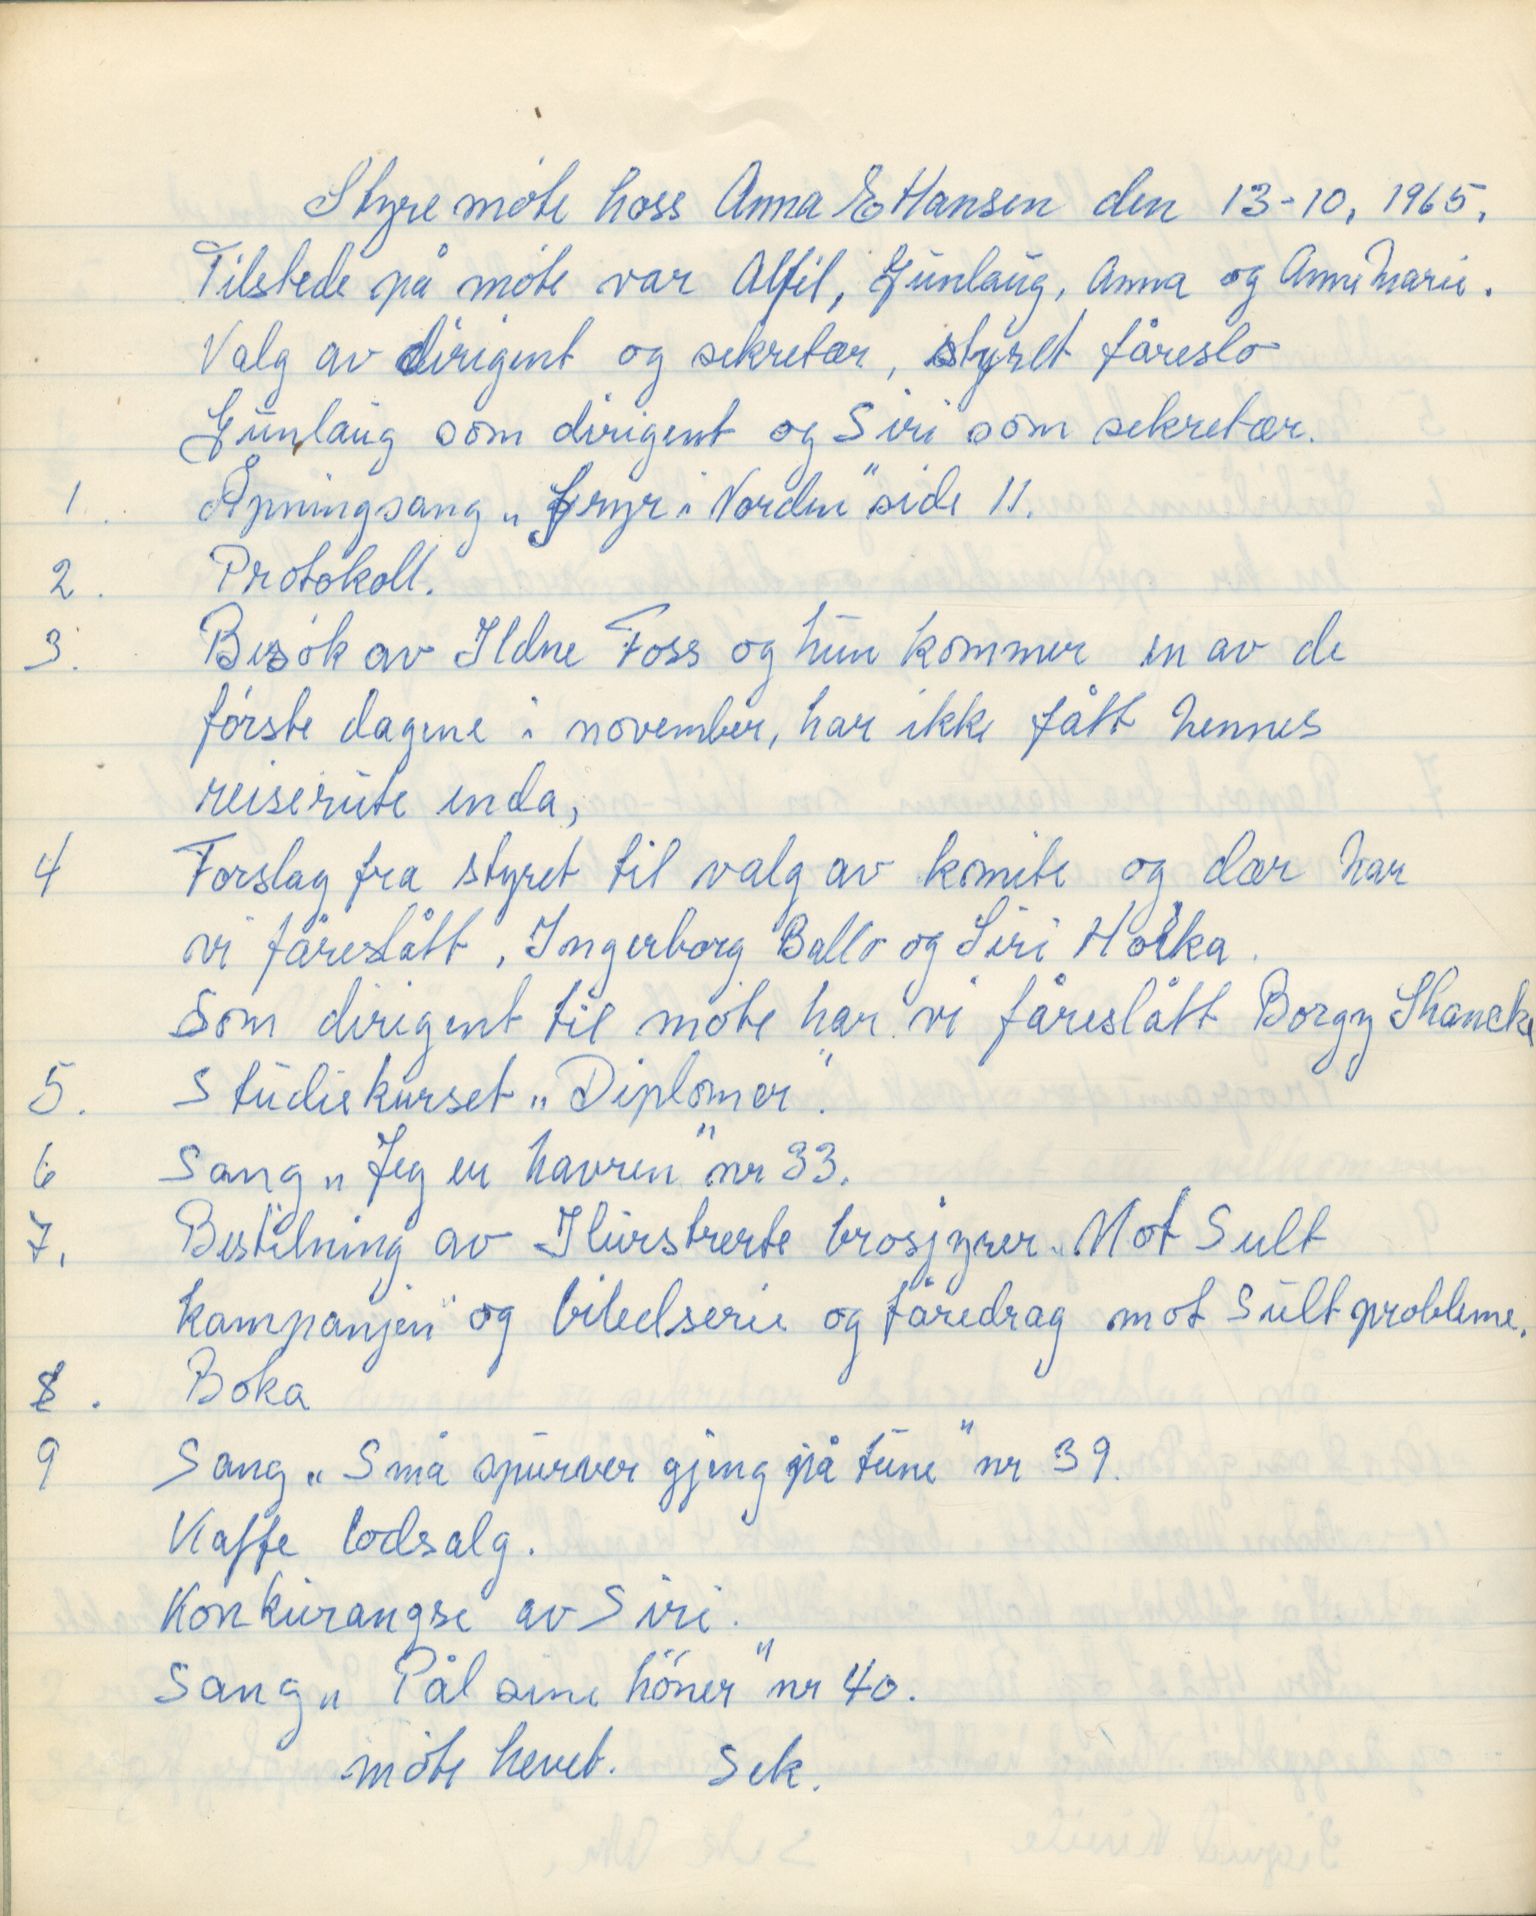 Styremöte hoss Anna E Hansen den 13-10, 1965.
Tilstede på möte var Alfil, Gunlaug, Anna og Anne Marie.
Valg av dirigent og sekretær, styret fåreslo
Gunlaug som dirigent og Siri som sekretær.
1. Åpningsang „Gryr i Norden" side 11.
2. Protokoll.
3. Besök av Ildne Foss og hun kommer en av de
förste dagene i november, har ikke fått hennes
reiserute enda,
4 Forslag fra styret til valg av komite og dær har
vi fåreslått, Ingerborg Ballo og Siri
Som dirigent til möte har vi fåreslått Borgy Skancke
5. Studiekurset „Diplomer".
6 Sang „Jeg er havren" nr 33.
7. Bestilning av Ilurstrerte brosjyrer „Mot Sult
kampanjen" og biledserie og fåredrag mot Sultprobleme.
8. Boka
9 Sang „Små spurver gjeng på tune" nr 39.
Kaffe lodsalg.
Konkurangse av Siri.
Sang „Pål sine höner" nr 40.
möte hevet. Sek.